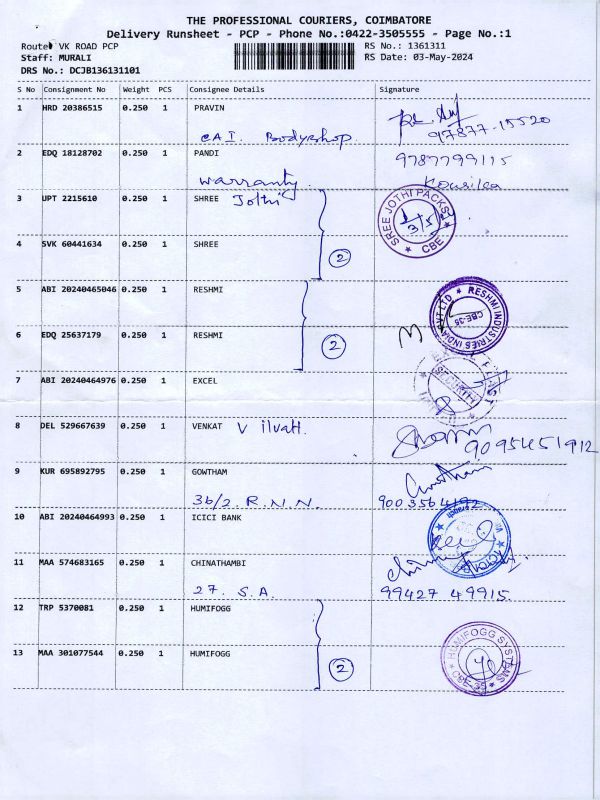 THE PROFESSIONAL COURIERS, COIMBATORE
Delivery Runsheet - PCP - Phone No.:0422-3505555 - Page No.:1
Route: VK ROAD PCP
RS No.: 1361311
Staff: MURALI
RS Date: 03-May-2024
DRS No.: DCJB136131101
S No Consignment No Weight PCS Consignee Details Signature
1 HRD 20386515 0.250 1 PRAVIN
CAI Bodyshop 97877-15520
2 EDQ 18128702 0.250 1 PANDI 9787799115
warranty Kousilea
3 UPT 2215610 0.250 1 SHREE Jothi
SREE JOTHI PACKS CBE
4 SVK 60441634 0.250 1 SHREE
2
5 ABI 20240465046 0.250 1 RESHMI
RESHMI INDUSTRIES INDIA PVT LTD CBE-35
6 EDQ 25637179 0.250 1 RESHMI
2
7 ABI 20240464976 0.250 1 EXCEL
SECURITY
8 DEL 529667639 0.250 1 VENKAT V
9095451912
9 KUR 695892795 0.250 1 GOWTHAM Gowtham
36/2 R.N.N. 9003564192
10 ABI 20240464993 0.250 1 ICICI BANK
11 MAA 574683165 0.250 1 CHINATHAMBI
27. S.A. 99427 49915
12 TRP 5370081 0.250 1 HUMIFOGG
HUMIFOGG SYSTEMS CBE-35
13 MAA 301077544 0.250 1 HUMIFOGG
2